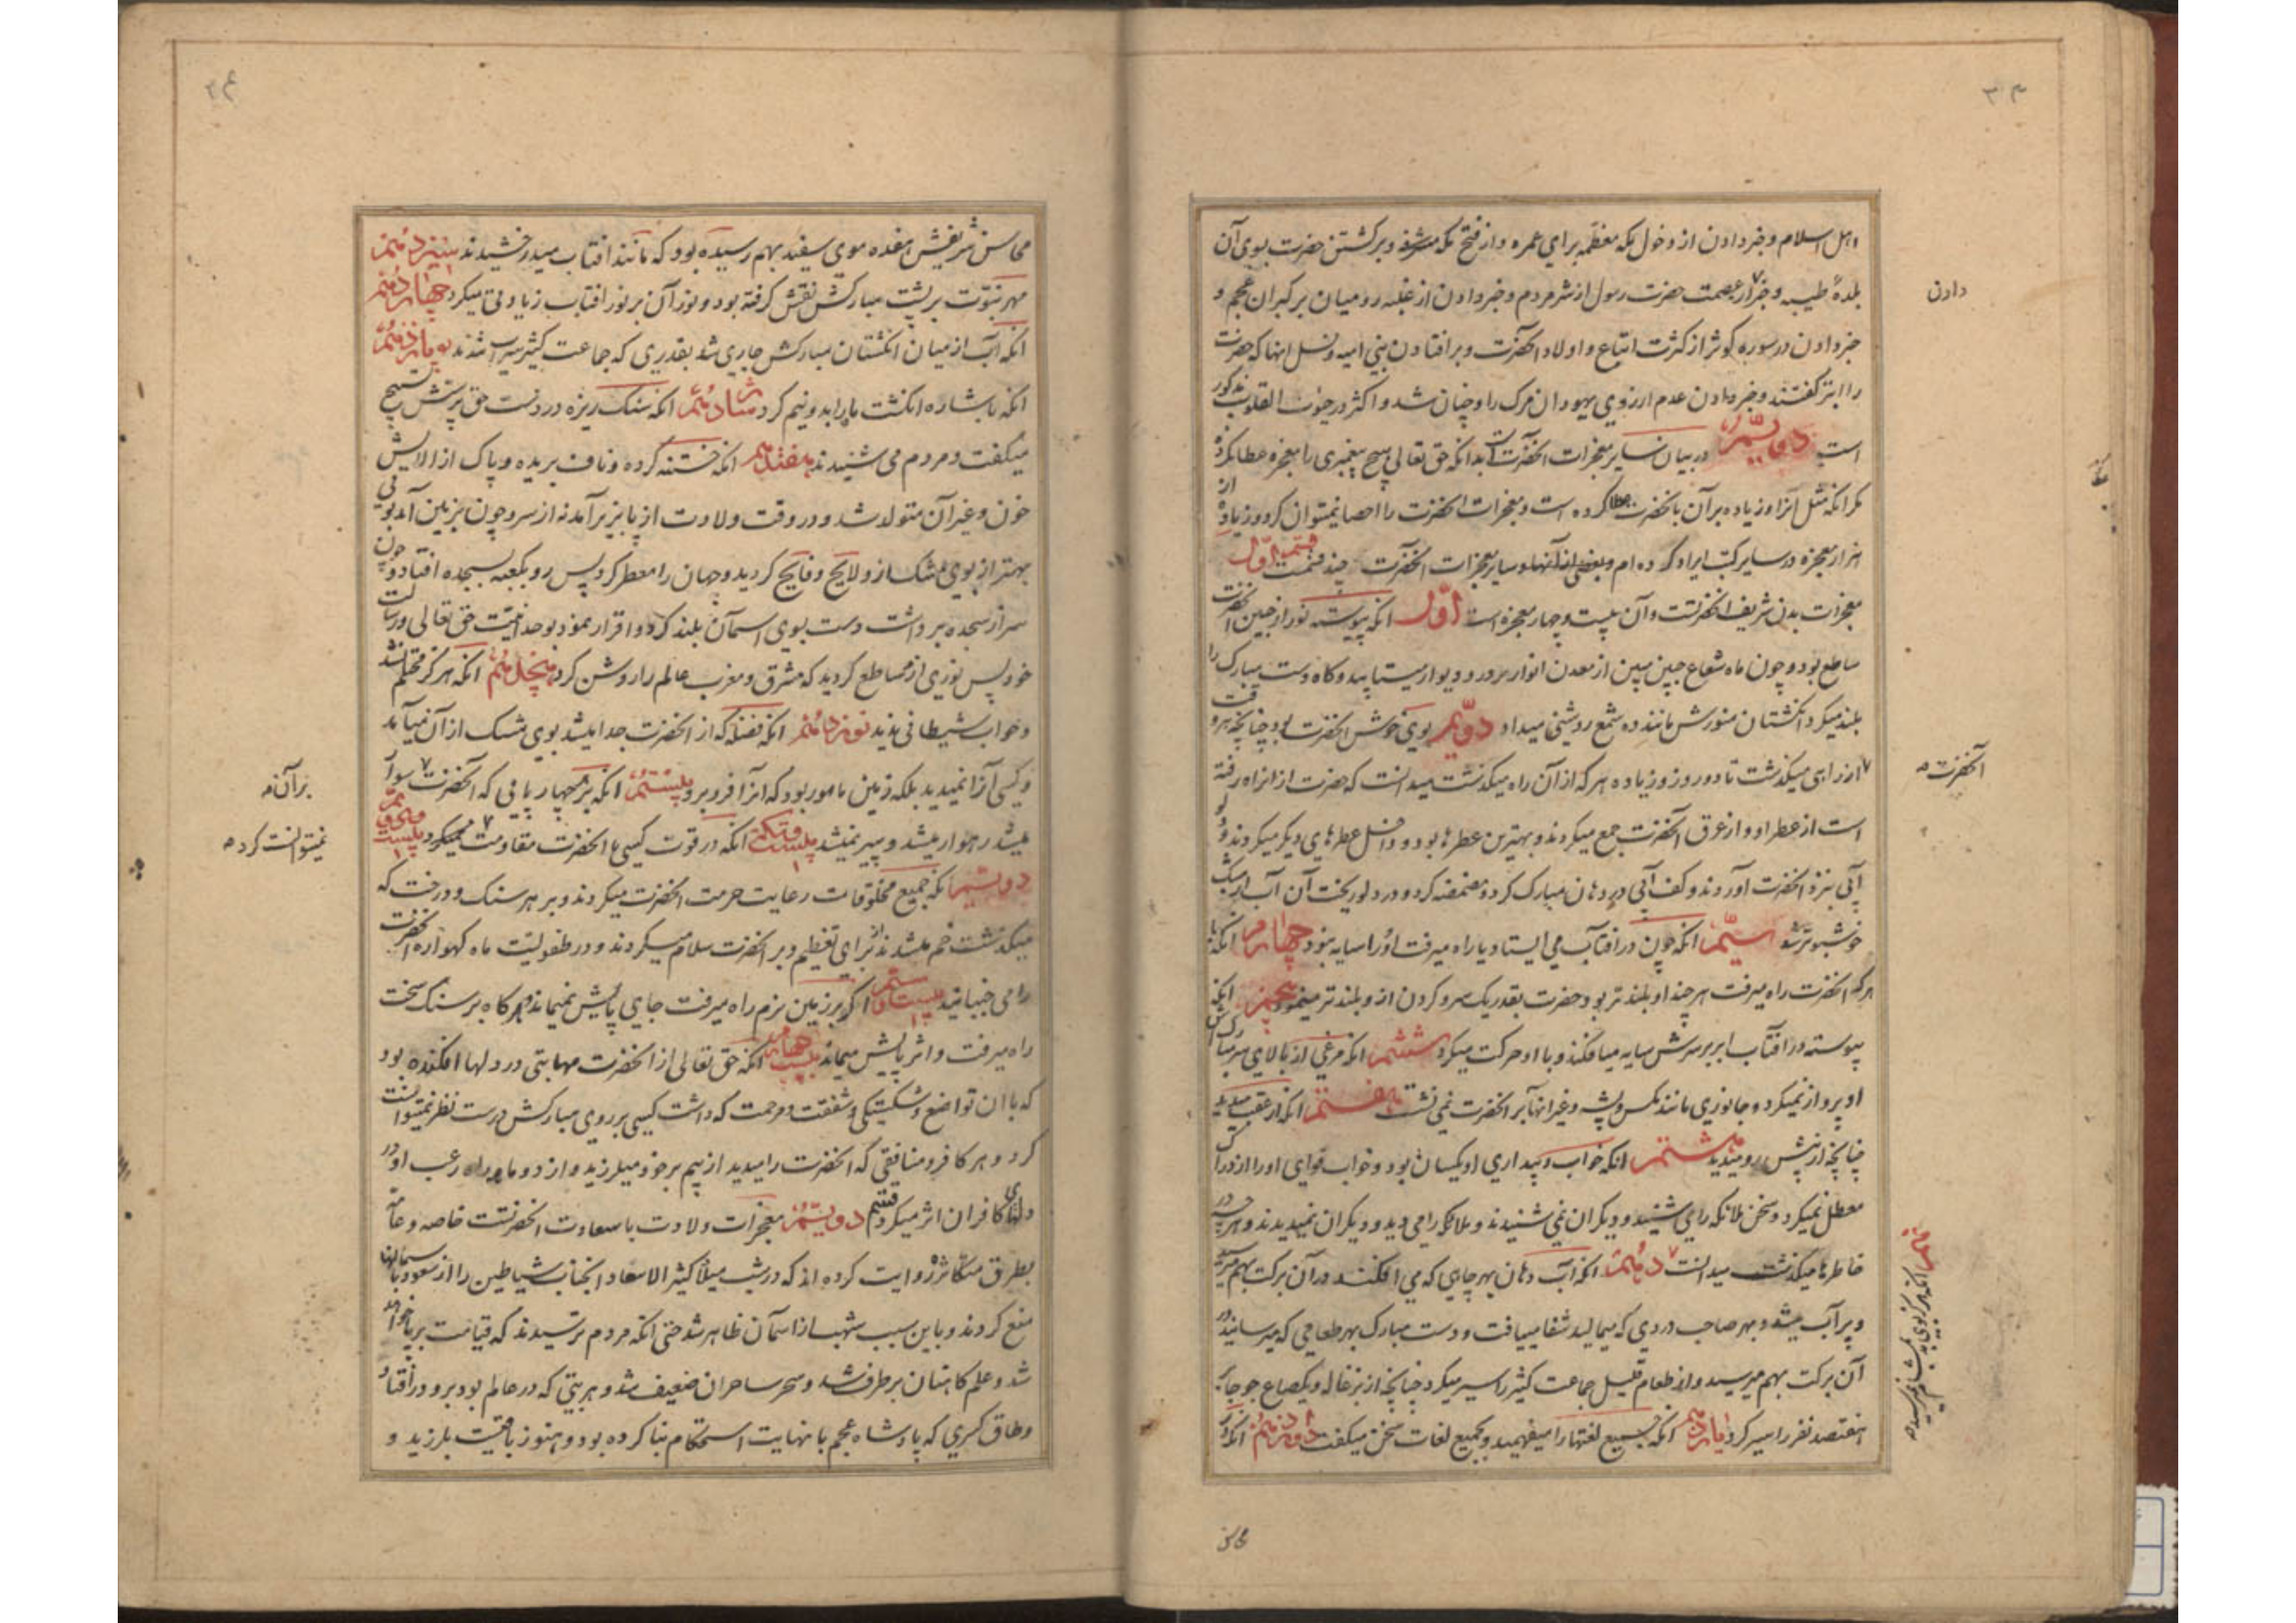 واهل اسلام و خبر دادن از دخول مکه معظمه برای عمره و از فتح مکه مشرفه و برگشتن حضرت بسوی آن
بلدهٔ طیبه و خبر از عصمت حضرت رسول از شر مردم و خبر دادن از غلبه رومیان بر کبران عجم و
دادن
خبر دادن در سوره کوثر از کثرت اتباع و اولاد آنحضرت و بر افتادن بنی امیه و نسل انها که حضرت
را ابتر گفتند و خبر دادن عدم ارزوی یهودان مرک را و چنان شد و اکثر در حیوت القلوب مذکور
است دویّم در بیان سایر معجزات آنحضرت است بدانکه حق تعالی هیچ پیغمبری را معجزه عطا نکرده
مکر انکه مثل آنرا و زیاده بر آن بانحضرت عطا کرده است و معجزات انحضرت را احصا نمیتوان کرد و زیاده از
هزار معجزه در سایر کتب ایراد کرده ام و بعضی از آنها و سایر معجزات آنحضرت چند قسمت قسم اوّل
معجزات بدن شریف انحضرتست و آن بیست و چهار معجزه است اوّل انکه پیوسته نور از جبین آنحضرت
ساطع بود و چون ماه شعاع جبین مبین از معدن انوار بر در و دیوار میتابید و کاه دست مبارک را
بلند میکرد انکشتان منورش مانند ده شمع روشنی میداد دوّیم بوی خوش انحضرت بود چنانچه هر وقت
از راهی میکذشت تا دو روز و زیاده هر که از آن راه میکذشت میدانست که حضرت از انراه رفته
آنحضرت
است از عطر او و از عرق آنحضرت جمع میکردند و بهترین عطرها بود و داخل عطرهای دیکر میکردند و دلو
آبی بنزد انحضرت آوردند و کف آبی در دهان مبارک کرد و مضمضه کرد و در دلو ریخت آن آب از مشک
خوشبوتر شد سیّم انکه چون در افتاب می ایستاد یا راه میرفت او را سایه نبود چهارم انکه با
هر که انحضرت راه میرفت هر چند او بلندتر بود حضرت بقدر یک سر و کردن از او بلندتر مینمود پنجم انکه
پیوسته در افتاب ابر بر سرش سایه میافکند و با او حرکت میکرد ششم انکه مرغی از بالای سر مبارکش
او پرواز نمیکرد و جانوری مانند مکس و پشه و غیر انها بر انحضرت نمی نشست هفتم انکه از عقب میدید
چنانچه از پیش رو میدید هشتم انکه خواب و بیداری او یکسان بود و خواب قوای او را از ادراک
معطل نمیکرد و سخن ملائکه را می شنید و دیکران نمی شنیدند و ملائکه را می دید و دیکران نمیدیدند و هر چه در
خاطرها میکذشت میدانست دهم انکه آب دهان بهر چاهی که می افکند در آن برکت بهم میرسید
نهم انکه هرکز بوی بد بمشام نمیرسید
و پر آب میشد و بهر صاحب دردی که میمالید شفا مییافت و دست مبارک بهر طعامی که میرسانید در
آن برکت بهم میرسید و از طعام قلیل جماعت کثیر را سیر میکرد چنانچه از بزغاله و یکصاع جو جابر
هفتصد نفر را سیر کرد یازدهم انکه جمیع لغتها را میفهمید و بجمیع لغات سخن میکفت دوازدهم انکه در
محاسن
محاسن شریفش هفده موی سفید بهم رسیده بود که مانند افتاب میدرخشیدند سیزدهم
مهر نبوّت بر پشت مبارکش نقش کرفته بود و نور آن بر نور افتاب زیادتی میکرد چهاردهم
انکه آب از میان انکشتان مبارکش جاری شد بقدری که جماعت کثیر سیراب شدند پانزدهم
انکه باشاره انکشت ماه را بدو نیم کرد شانزدهم انکه سنک ریزه در دست حق پرستش تسبیح
میکفت و مردم می شنیدند هفدهم انکه ختنه کرده و ناف بریده و پاک از الایش
خون و غیر آن متولد شد و در وقت ولادت از پا بزیر آمد نه از سر و چون بزمین آمد بوئی
بهتر از بوی مشک از و لایح و فایح کردید و جهان را معطر کرد پس رو بکعبه بسجده افتاد و چون
سر از سجده برداشت دست بسوی اسمان بلند کرد و اقرار نمود بوحدانیّت حق تعالی و رسالت
خود پس نوری از و ساطع کردید که مشرق و مغرب عالم را روشن کرد هیجدهم انکه هرکز محتلم نشد
و خواب شیطانی ندید نوزدهم انکه فضله که از انحضرت جدا میشد بوی مشک از آن میآمد
و کسی آنرا نمیدید بلکه زمین مامور بود که انرا فرو برد بیستم انکه بر هر چهار پایی که آنحضرت سوار
بر آن
میشد رهوار میشد و پیر نمیشد بیست و یکم انکه در قوت کسی با انحضرت مقاومت نمیکرد بیست و
نمیتوانست کرد
دویّم انکه جمیع مخلوقات رعایت حرمت انحضرت میکردند و بر هر سنک و درخت که
میکذشت خم میشدند از برای تعظیم و بر انحضرت سلام میکردند و در طفولیّت ماه کهواره انحضرت
را می جنبانید بیست و سیّم اکر بر زمین نرم راه میرفت جای پایش نمیماند و هر کاه بر سنک سخت
راه میرفت و اثر پایش میماند بیست و چهارم انکه حق تعالی از انحضرت مهابتی در دلها افکنده بود
که با ان تواضع و شکستکی و شفقت و مرحمت که داشت کسی بر روی مبارکش درست نظر نمیتوانست
کرد و هر کافر و منافقی که انحضرت را میدید از بیم بر خود میلرزید و از دو ماهه راه رعب او در
دلهای کافران اثر میکرد قسم دویّم معجزات ولادت با سعادت انحضرتست خاصه و عامّه
بطرق متکاثره روایت کرده اند که در شب میلاد کثیر الاسعاد انجناب شیاطین را از صعود باسمانها
منع کردند و باین سبب شهب از اسمان ظاهر شد حتی انکه مردم ترسیدند که قیامت برپا خواهد
شد و علم کاهنان بر طرف شد و سحر ساحران ضعیف شد و هر بتی که در عالم بود برو در افتاد
و طاق کسری که پادشاه عجم با نهایت استحکام بنا کرده بود و هنوز باقیست بلرزید و